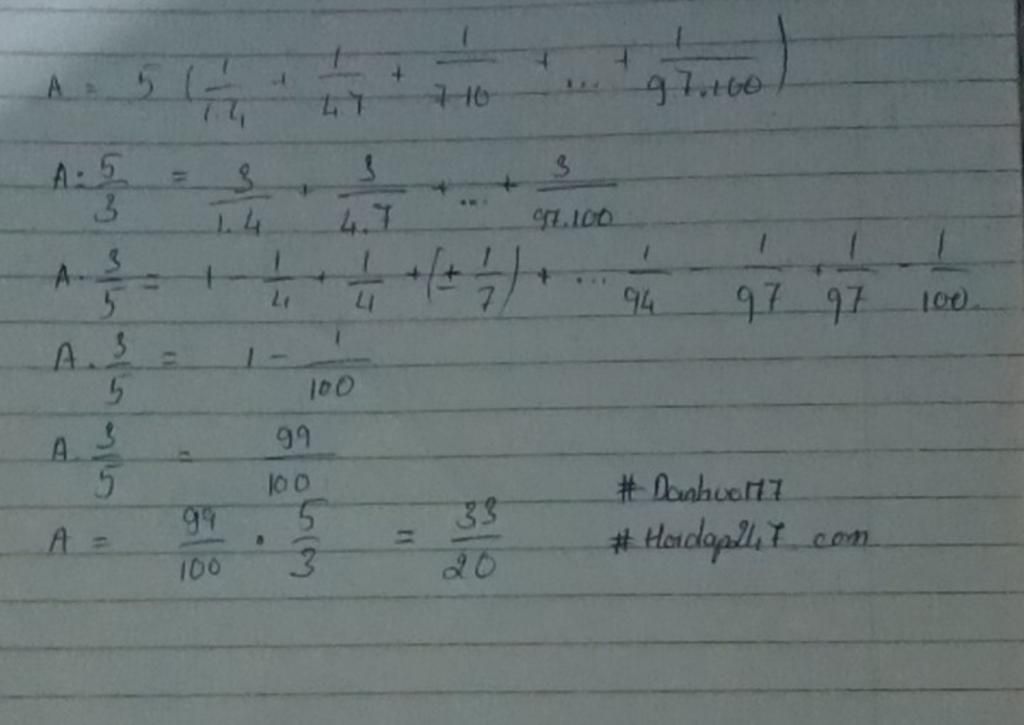 A = 5 (1/1.4 + 1/4.7 + 1/7.10 + ... + 1/97.100)
A : 5/3 = 3/1.4 + 3/4.7 + ... + 3/97.100
A . 3/5 = 1 - 1/4 + 1/4 + (± 1/7) + ... 1/94 - 1/97 + 1/97 - 1/100
A . 3/5 = 1 - 1/100
A . 3/5 = 99/100
A = 99/100 . 5/3 = 33/20
#Hoidap247.com